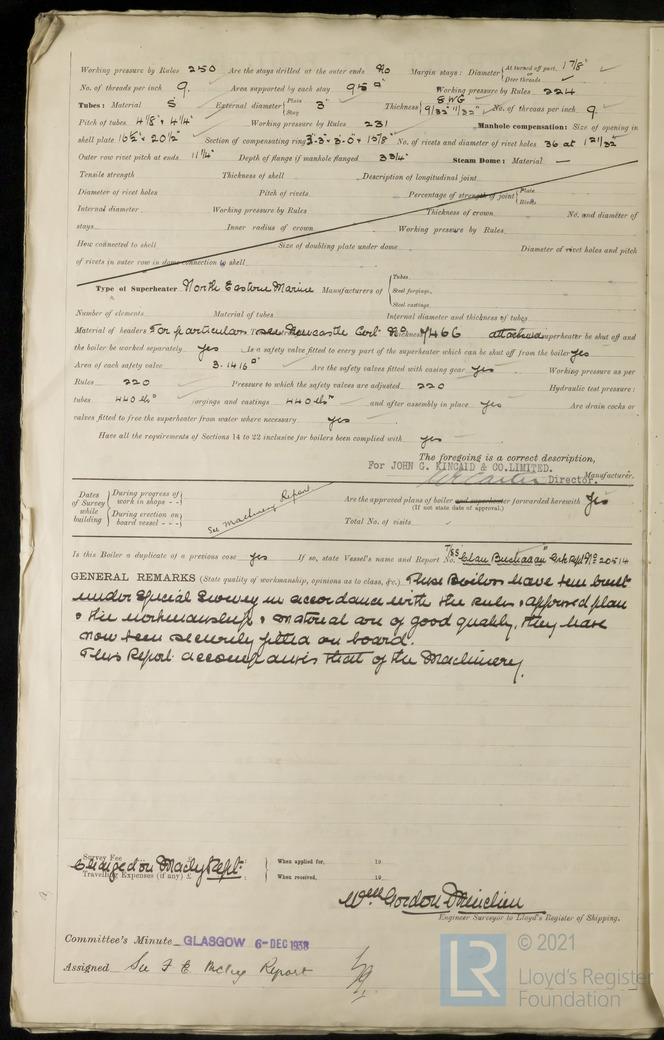 Working pressure by Rules 250 Are the stays drilled at the outer ends No Margin stays: Diameter {At turned off part, 1 7/8" or Over threads
No. of threads per inch 9. Area supported by each stay 95 □" Working pressure by Rules 224
Tubes: Material S External diameter {Plain Stay 3" Thickness {8 WG 9/32" 11/32" No. of threads per inch 9
Pitch of tubes 4 1/8" × 4 1/4" Working pressure by Rules 231 Manhole compensation: Size of opening in
shell plate 16 1/2" × 20 1/2" Section of compensating ring No. of rivets and diameter of rivet holes 36 at 1 21/32
Outer row rivet pitch at ends 11 1/4" Depth of flange if manhole flanged 3 3/4" Steam Dome: Material —
Tensile strength Thickness of shell Description of longitudinal joint
Diameter of rivet holes Pitch of rivets Percentage of strength of joint {Plate Rivets
Internal diameter Working pressure by Rules Thickness of crown No. and diameter of
stays Inner radius of crown Working pressure by Rules
How connected to shell Size of doubling plate under dome Diameter of rivet holes and pitch
of rivets in outer row in dome connection to shell
Type of Superheater North Eastern Marine Manufacturers of {Tubes Steel forgings Steel castings
Number of elements Material of tubes Internal diameter and thickness of tubes
Material of headers For particulars see Newcastle Cert. No. 7466 attached superheater be shut off and
the boiler be worked separately yes Is a safety valve fitted to every part of the superheater which can be shut off from the boiler yes
Area of each safety valve 3.1416 □" Are the safety valves fitted with easing gear yes Working pressure as per
Rules 220 Pressure to which the safety valves are adjusted 220 Hydraulic test pressure:
tubes 440 lbs □" forgings and castings 440 lbs □" and after assembly in place yes Are drain cocks or
valves fitted to free the superheater from water where necessary yes
Have all the requirements of Sections 14 to 22 inclusive for boilers been complied with yes
The foregoing is a correct description,
For JOHN G. KINCAID & CO. LIMITED.
Director. Manufacturer.
Dates of Survey while building {During progress of work in shops - - {During erection on board vessel - - - See Machinery Report
Are the approved plans of boiler and superheater forwarded herewith Yes
(If not state date of approval.)
Total No. of visits
Is this Boiler a duplicate of a previous case yes If so, state Vessel's name and Report No. T/SS "Clan Buchanan" Grk Rpt No 20514
GENERAL REMARKS (State quality of workmanship, opinions as to class, &c.) These Boilers have been built
under Special Survey in accordance with the rules & approved plan
& the workmanship & material are of good quality, they have
now been securely fitted on board.
This Report accompanies that of the Machinery.
Survey Fee
Charged on Machy Rept.
Travelling Expenses (if any) £
When applied for, 19
When received, 19
Wm Gordon
Engineer Surveyor to Lloyd's Register of Shipping.
Committee's Minute GLASGOW 6 - DEC 1938
Assigned See F. E. Mchy Report
LR © 2021
Lloyd's Register
Foundation